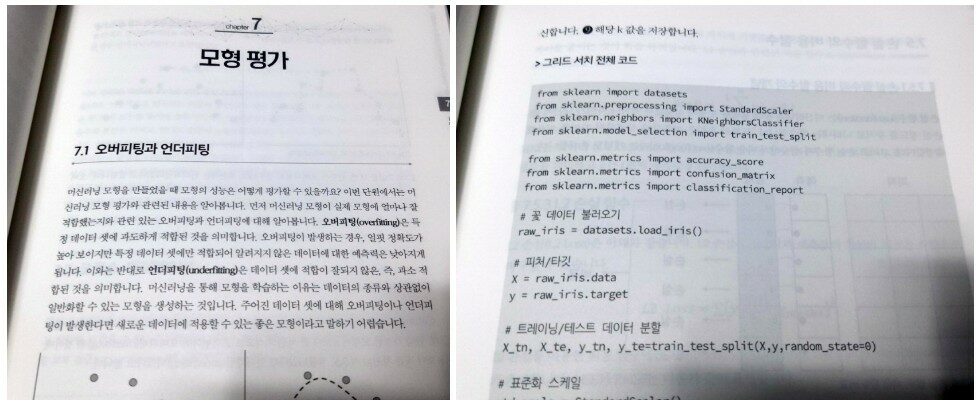 chapter 7
모형 평가
7.1 오버피팅과 언더피팅
머신러닝 모형을 만들었을 때 모형의 성능은 어떻게 평가할 수 있을까요? 이번 단원에서는 머
신러닝 모형 평가와 관련된 내용을 알아봅니다. 먼저 머신러닝 모형이 실제 모형에 얼마나 잘
적합했는지와 관련 있는 오버피팅과 언더피팅에 대해 알아봅니다. 오버피팅(overfitting)은 특
정 데이터 셋에 과도하게 적합된 것을 의미합니다. 오버피팅이 발생하는 경우, 얼핏 정확도가
높아 보이지만 특정 데이터 셋에만 적합되어 알려지지 않은 데이터에 대한 예측력은 낮아지게
됩니다. 이와는 반대로 언더피팅(underfitting)은 데이터 셋에 적합이 잘되지 않은, 즉, 과소 적
합된 것을 의미합니다. 머신러닝을 통해 모형을 학습하는 이유는 데이터의 종류와 상관없이
일반화할 수 있는 모형을 생성하는 것입니다. 주어진 데이터 셋에 대해 오버피팅이나 언더피
팅이 발생한다면 새로운 데이터에 적용할 수 있는 좋은 모형이라고 말하기 어렵습니다.
신합니다. ❾ 해당 k 값을 저장합니다.
> 그리드 서치 전체 코드
from sklearn import datasets
from sklearn.preprocessing import StandardScaler
from sklearn.neighbors import KNeighborsClassifier
from sklearn.model_selection import train_test_split
from sklearn.metrics import accuracy_score
from sklearn.metrics import confusion_matrix
from sklearn.metrics import classification_report
# 꽃 데이터 불러오기
raw_iris = datasets.load_iris()
# 피처/타깃
X = raw_iris.data
y = raw_iris.target
# 트레이닝/테스트 데이터 분할
X_tn, X_te, y_tn, y_te=train_test_split(X,y,random_state=0)
# 표준화 스케일